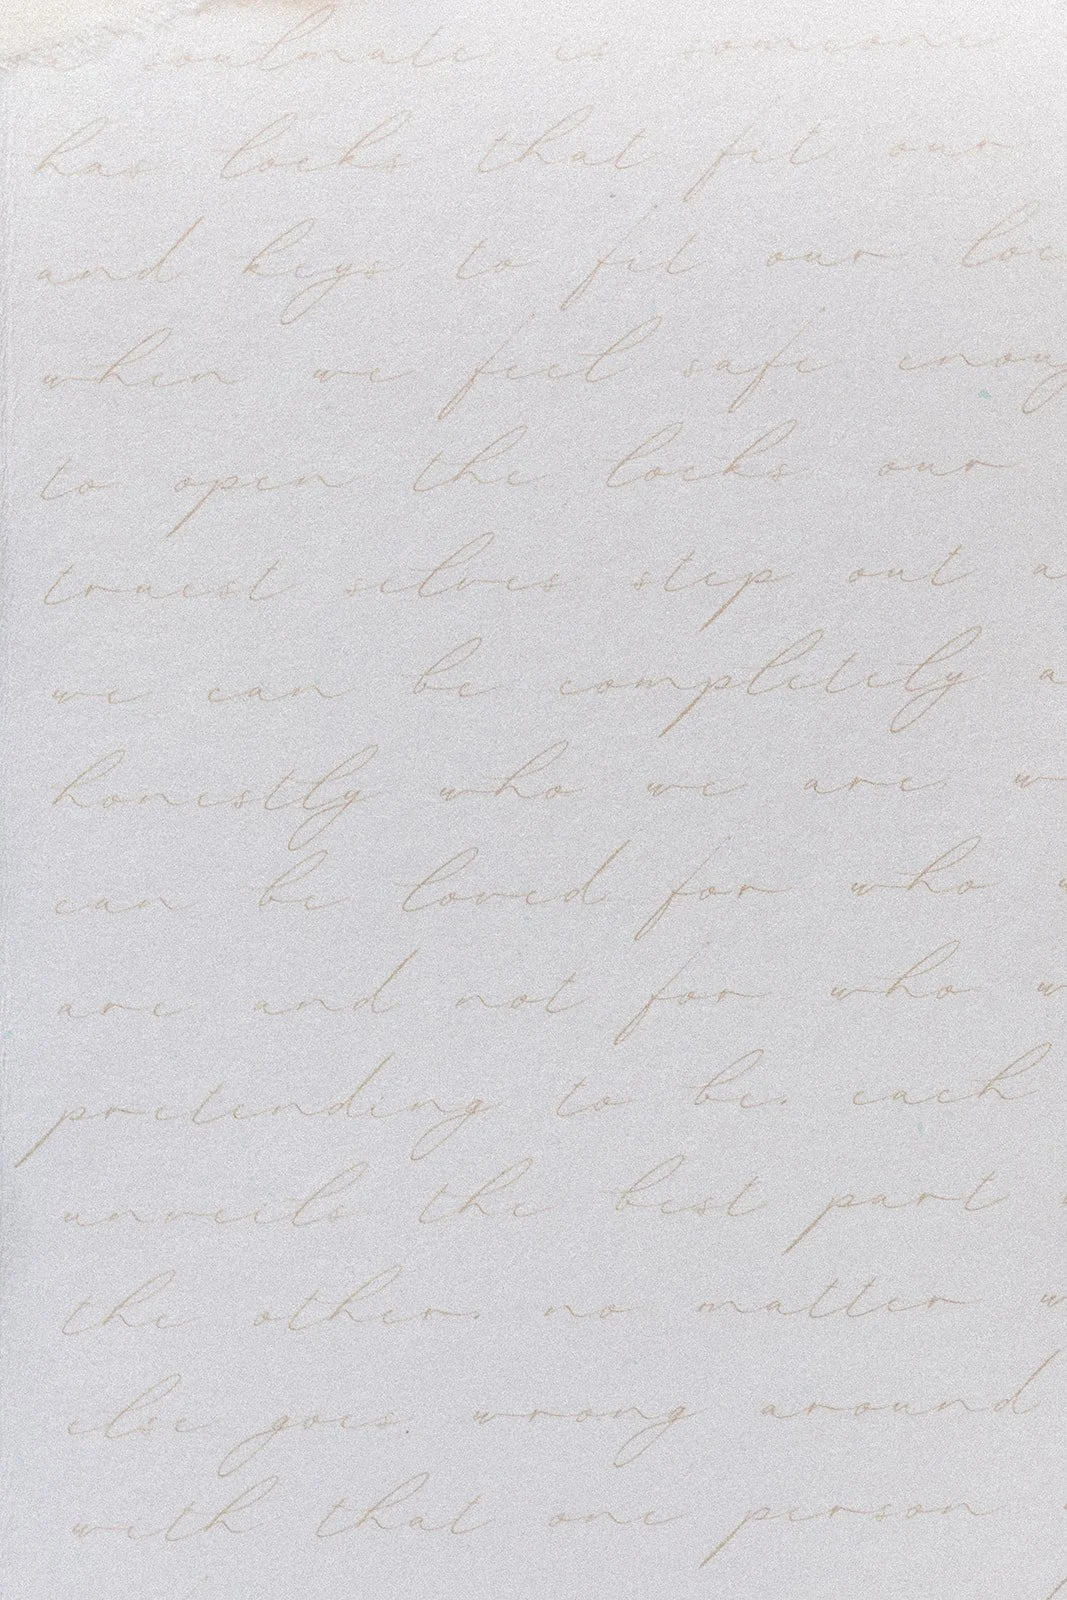 soulmate is someone
has locks that fit our
and keys to fit our loc
when we feel safe enoug
to open the locks our
truest selves step out a
we can be completely a
honestly who we are w
can be loved for who w
are and not for who w
pretending to be. each
unveils the best part
the other. no matter w
else goes wrong around
with that one person